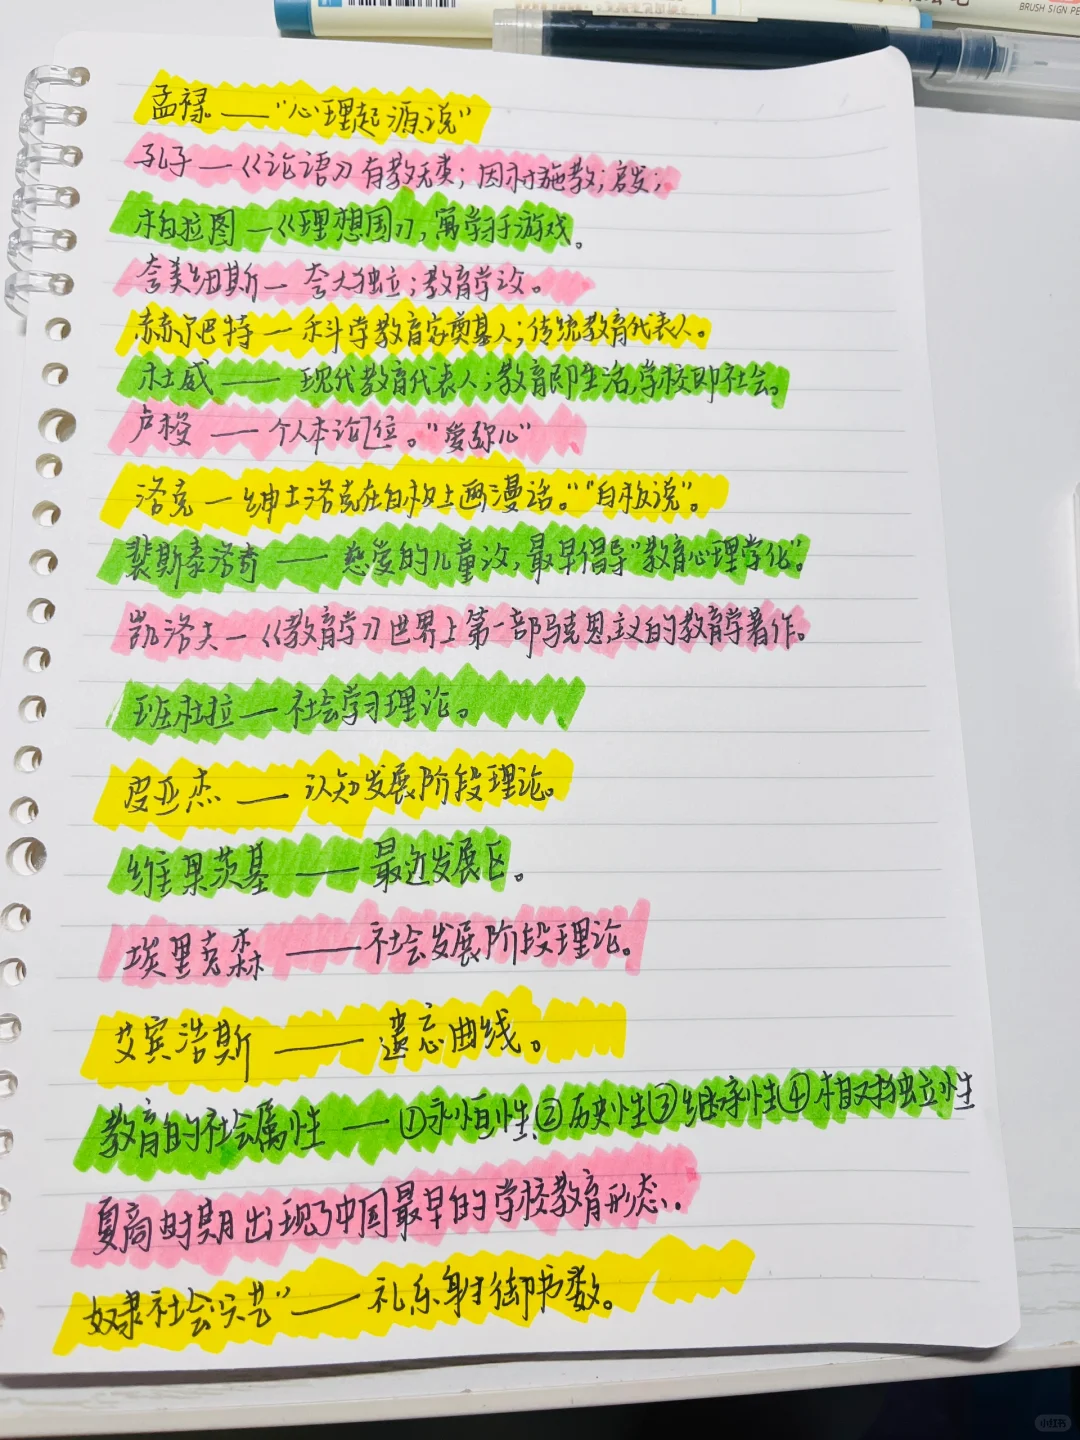 BRUSH SIGN PE
孟禄——“心理起源说”
孔子—《论语》有教无类；因材施教；启发；
柏拉图—《理想国》，寓学于游戏。
夸美纽斯— 夸大独立；教育学父。
赫尔巴特—科学教育学奠基人；传统教育代表人。
杜威—— 现代教育代表人；教育即生活，学校即社会。
卢梭 —— 个人本论位。“爱弥儿”
洛克—绅士洛克在白板上画漫话。“”白板说”。
裴斯泰洛奇 —— 慈爱的儿童父，最早倡导“教育心理学化”。
凯洛夫—《教育学》世界上第一部马克思主义的教育学著作。
班杜拉—社会学习理论。
皮亚杰 —— 认知发展阶段理论。
维果茨基 —— 最近发展区。
埃里克森 ——社会发展阶段理论。
艾宾浩斯 —— 遗忘曲线。
教育的社会属性 — ①永恒性②历史性③继承性④相对独立性
夏商时期出现了中国最早的学校教育形态.
奴隶社会“六艺”——礼乐射御书数。
小红书